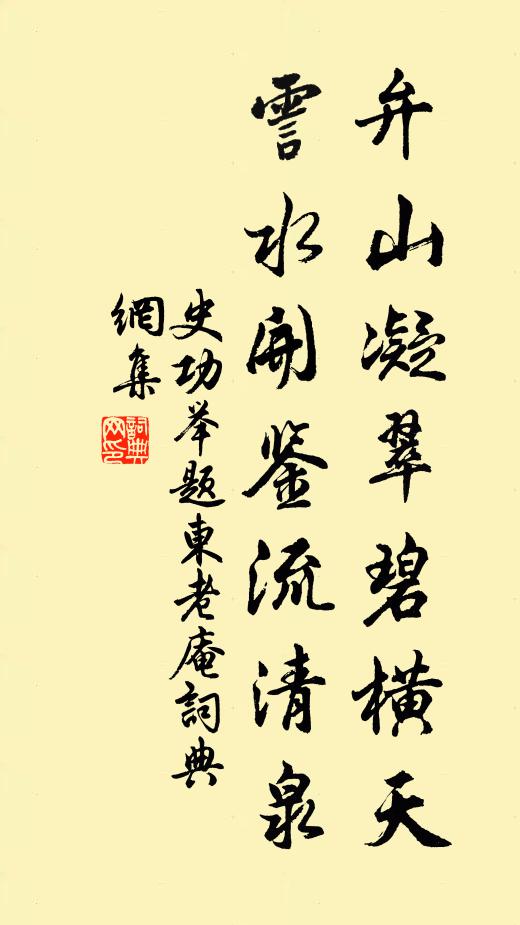 弁山凝翠碧橫天
霅水開鉴流清泉
史功举題東老庵詞典
網集
詞典
网印